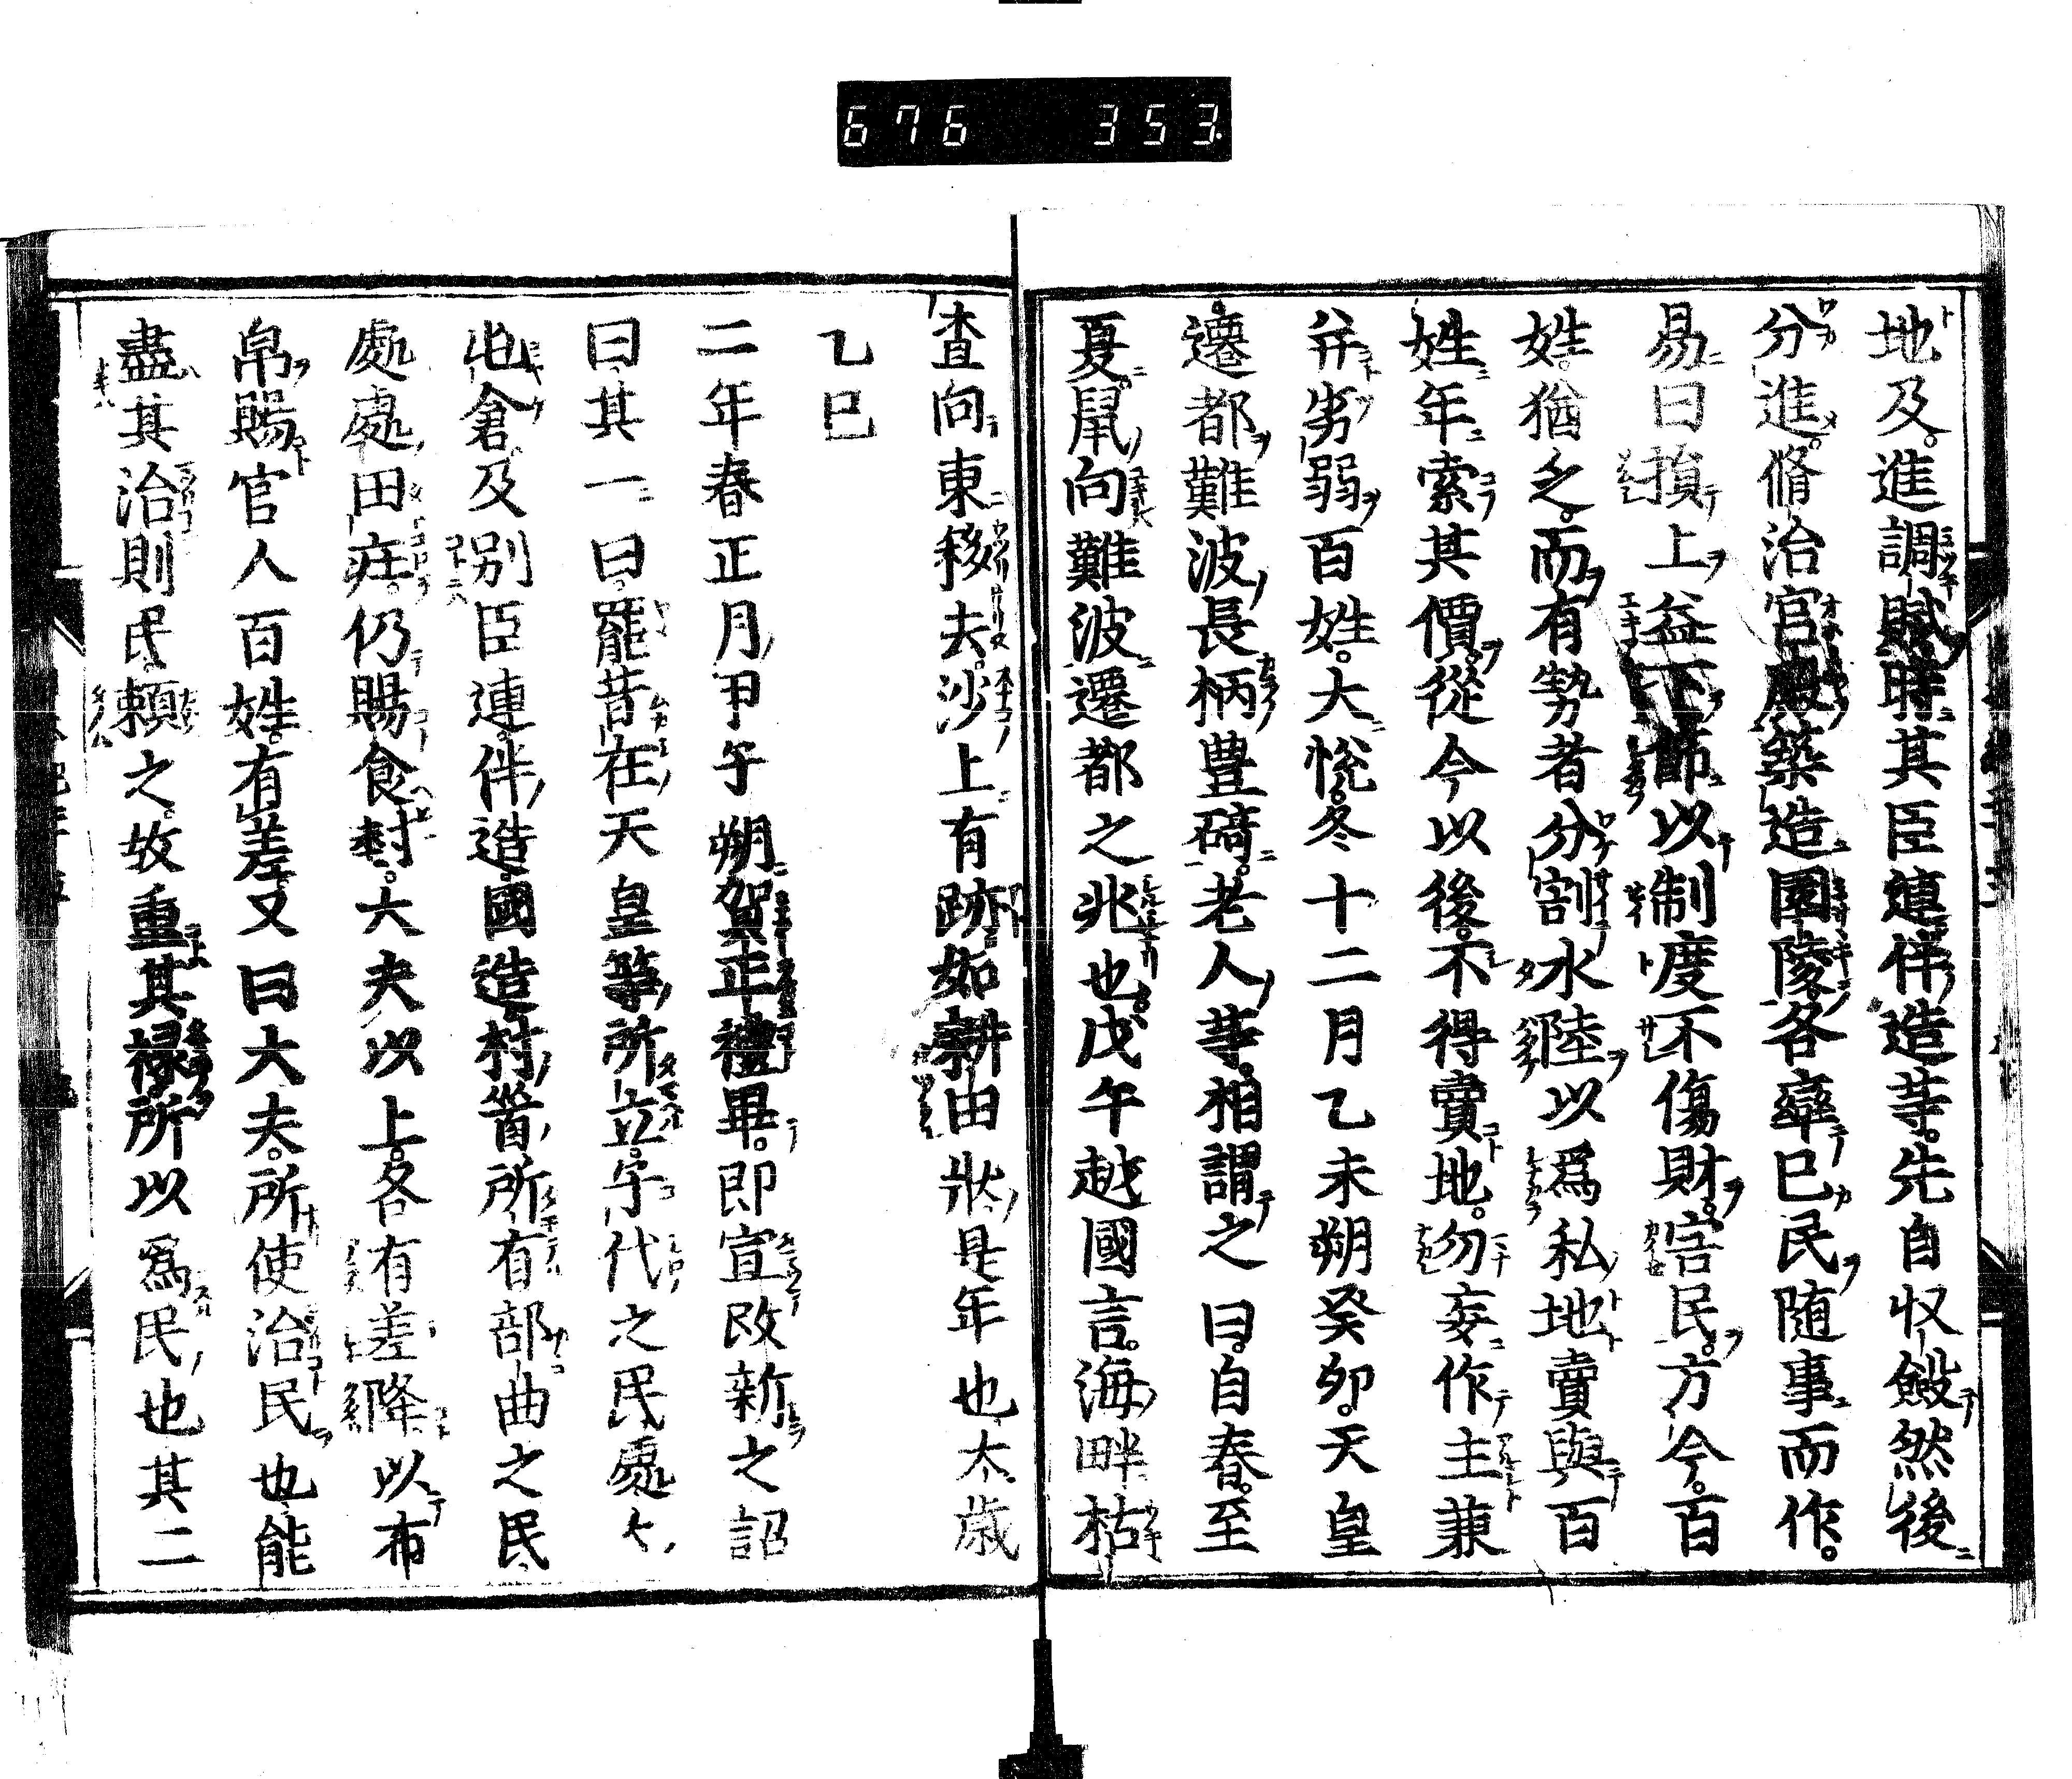 676 353
地及進調賦時其臣連伴造等先自収斂然後
分進脩治官殿築造園陵各率巳民随事而作
易曰損上益下節以制度不傷財害民方今百
姓猶乏而有勢者分割水陸以爲私地賣與百
姓年索其價從今以後不得賣地勿妄作主兼
并劣弱百姓大悅冬十二月乙未朔癸卯天皇
遷都難波長柄豊碕老人等相謂之曰自春至
夏鼠向難波遷都之兆也戊午越國言海畔枯
査向東移去沙上有跡如耕田狀是年也太歳
乙巳
二年春正月甲午朔賀正禮畢即宣改新之詔
曰其一曰罷昔在天皇等所立子代之民處々
屯倉及別臣連伴造國造村首所有部曲之民
處處田庄仍賜食封大夫以上各有差降以布
帛賜官人百姓有差又曰大夫所使治民也能
盡其治則民頼之故重其禄所以爲民也其二